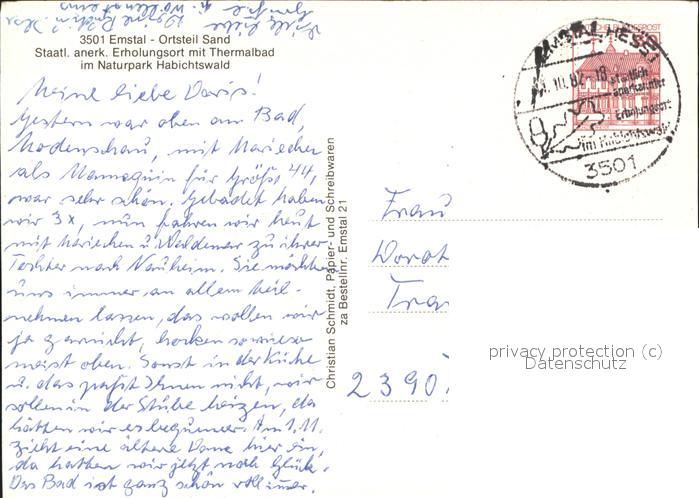 3501 Emstal - Ortsteil Sand
Staatl. anerk. Erholungsort mit Thermalbad
im Naturpark Habichtswald
Meine liebe Doris!
Gestern war oben am Bad,
Modenschau, mit Mariechen
als Mannequin für Größe 44,
war sehr schön. Gebadet haben
wir 3x, nun fahren wir heut
mit Mariechen u. Waldemar zu ihrer
Tochter nach Nauheim. Sie möchten
uns immer an allem teil-
nehmen lassen, das wollen wir
ja gar nicht, hocken sowieso
meist oben. Sonst in der Küche
u. das paßt Ihnen nicht, wir
sollen in der Stube heizen, da
hätten wir es bequemer. Am 1.11.
zieht eine ältere Dame hier ein,
da hatten wir jetzt noch Glück.
Das Bad ist ganz schön voll immer.
Christian Schmidt, Papier- und Schreibwaren
zu Bestellnr. Emstal 21
82-18
staatlich
anerkannter
Erholungsort
im Habichtswald
3501
Frau
Dorot
Tra
2390
privacy protection (c)
Datenschutz